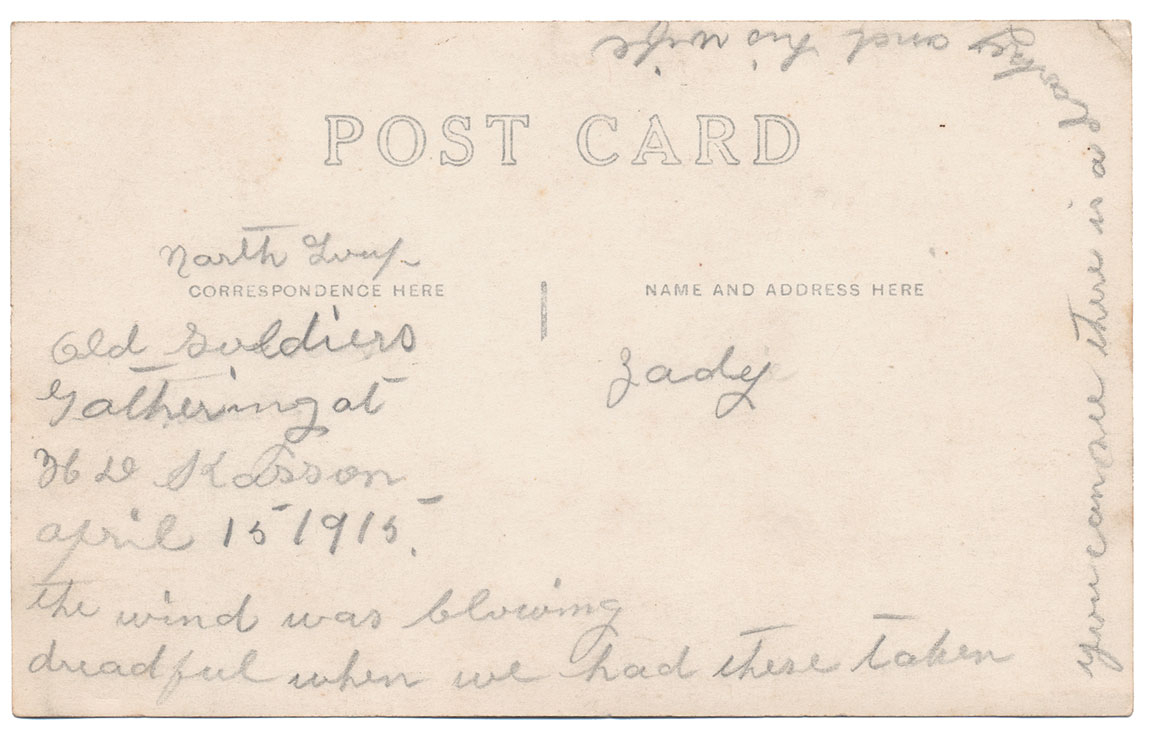 POST CARD
North Loup
CORRESPONDENCE HERE
NAME AND ADDRESS HERE
Old Soldiers
Gathering at
H D Kasson
april 15 1915.
the wind was blowing
dreadful when we had these taken
Zady
you can see there is a
and his wife